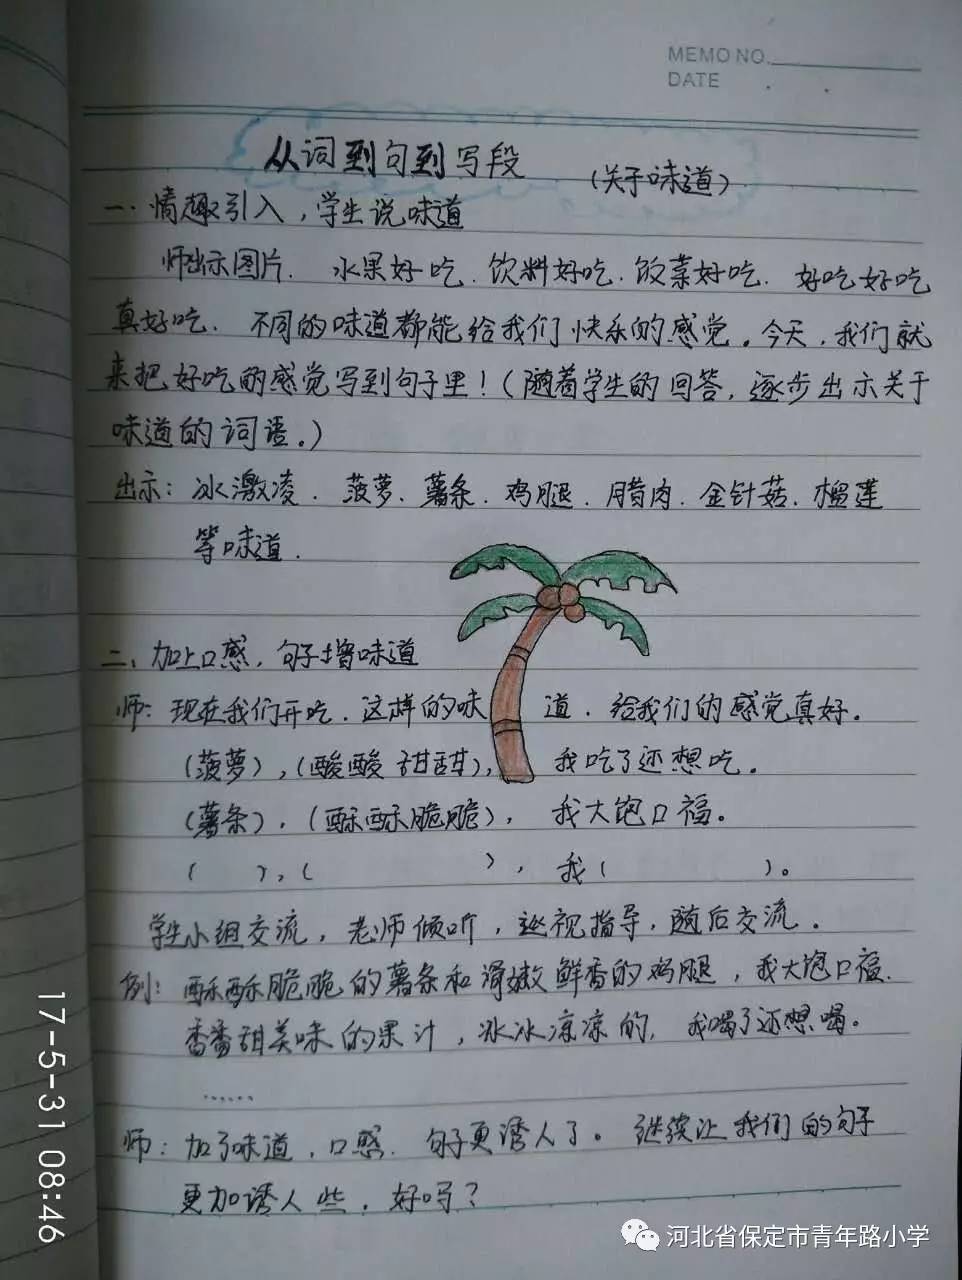 MEMO NO.
DATE . .
从词到句到写段 (关于味道)
一.情趣引入,学生说味道
师出示图片. 水果好吃.饮料好吃.饭菜好吃. 好吃好吃
真好吃. 不同的味道都能给我们快乐的感觉。今天,我们就
来把好吃的感觉写到句子里!(随着学生的回答,逐步出示关于
味道的词语。)
出示: 冰激凌. 菠萝. 薯条. 鸡腿. 腊肉. 金针菇. 榴莲
等味道.
二、加上口感,句子增味道
师: 现在我们开吃.这样的味道.给我们的感觉真好。
(菠萝),(酸酸甜甜), 我吃了还想吃。
(薯条),(酥酥脆脆), 我大饱口福。
( ),( ), 我( )。
学生小组交流,老师倾听,巡视指导,随后交流.
例: 酥酥脆脆的薯条和滑嫩鲜香的鸡腿,我大饱口福.
香香甜美味的果汁,冰冰凉凉的,我喝了还想喝。
……
师: 加了味道,口感.句子更诱人了。继续让我们的句子
更加诱人些,好吗?
17-5-31 08:46
河北省保定市青年路小学